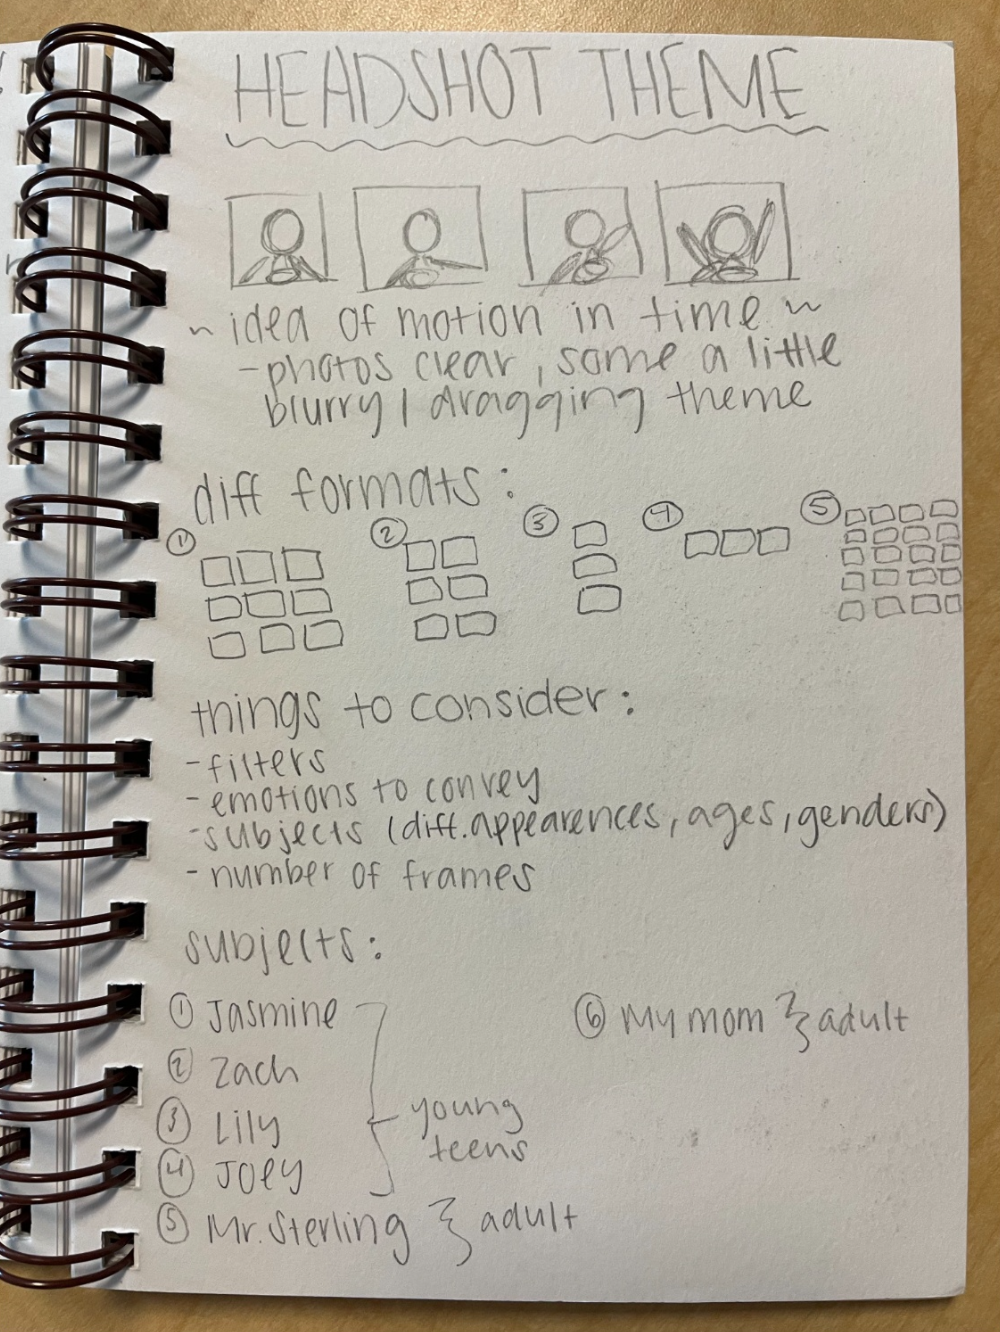 HEADSHOT THEME
~ idea of motion in time ~
- photos clear, some a little
blurry / dragging theme
diff formats:
1 2 3 4 5
things to consider:
- filters
- emotions to convey
- subjects (diff. appearences, ages, genders)
- number of frames
subjects:
1 Jasmine
2 Zach
3 Lily
4 Joey
young
teens
5 Mr. Sterling } adult
6 My mom } adult